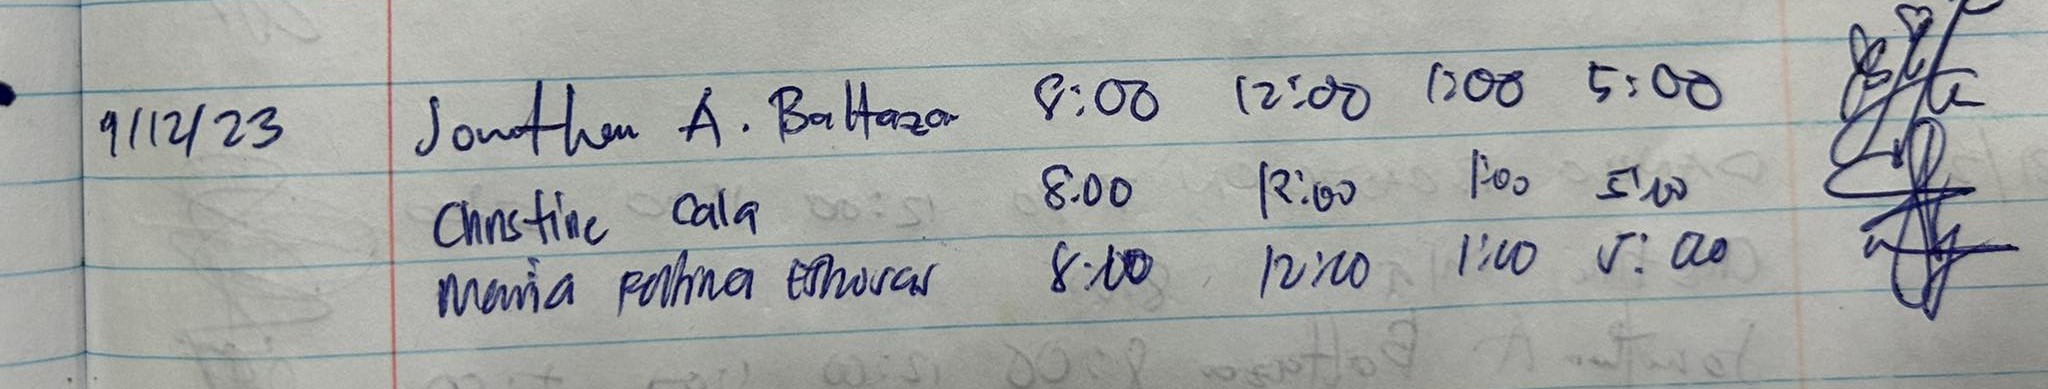 9/12/23 Jonathan A. Baltazar 8:00 12:00 1:00 5:00
Christine Cala 8:00 12:00 1:00 5:00
Maria 8:00 12:00 1:00 5:00